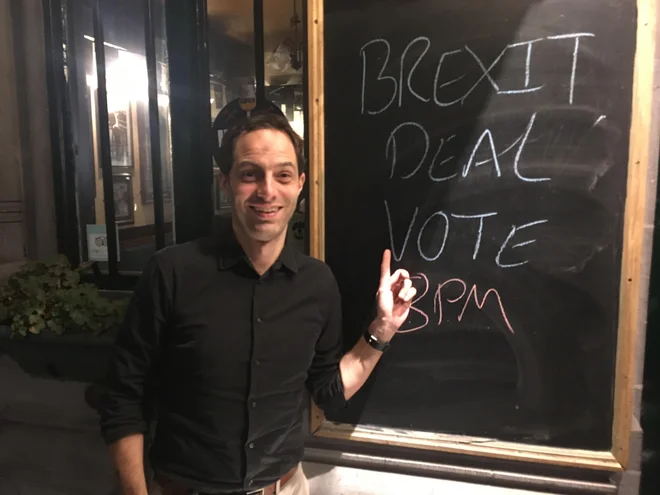 BREXIT
DEAL
VOTE
8PM